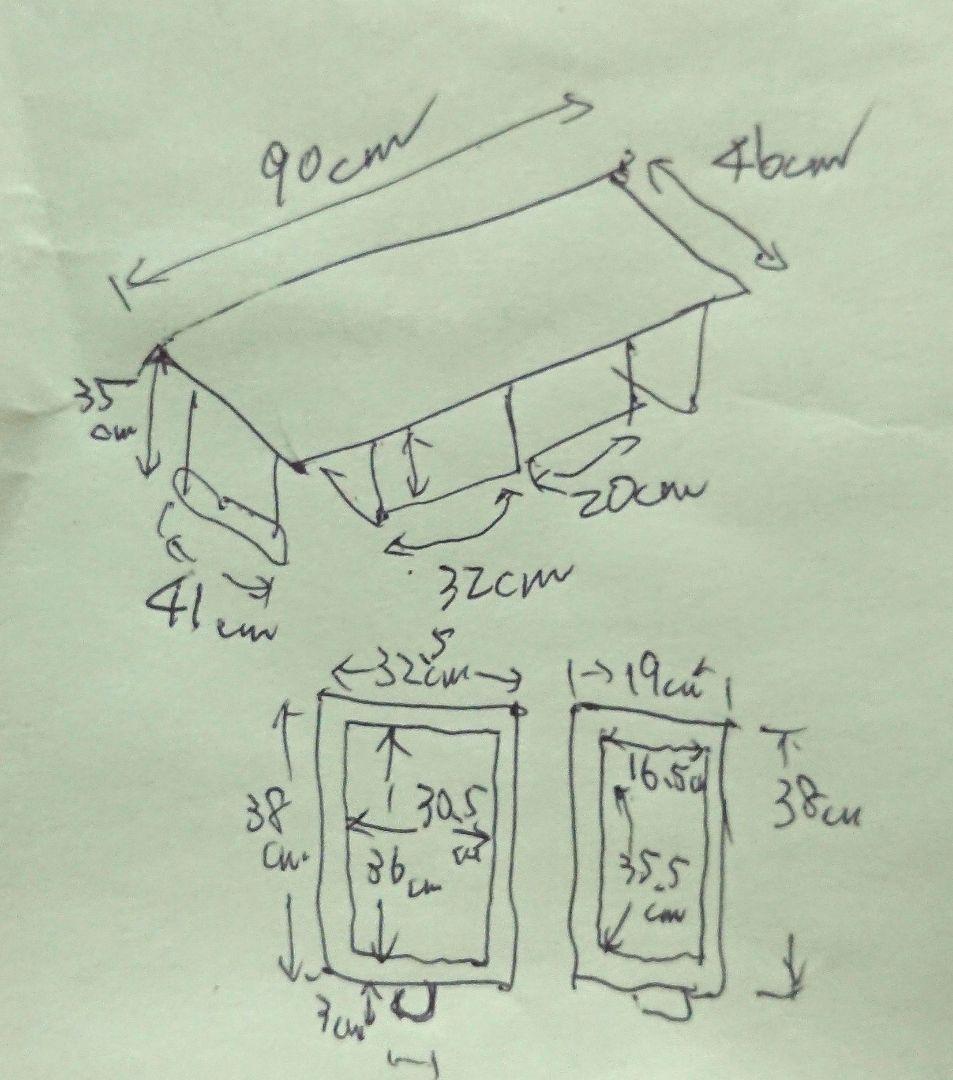 90cm
46cm
35
cm
20cm
32cm
41cm
32.5cm
19cm
16.5cm
38
cm
30.5
cm
38cm
36cm
35.5
cm
3cm